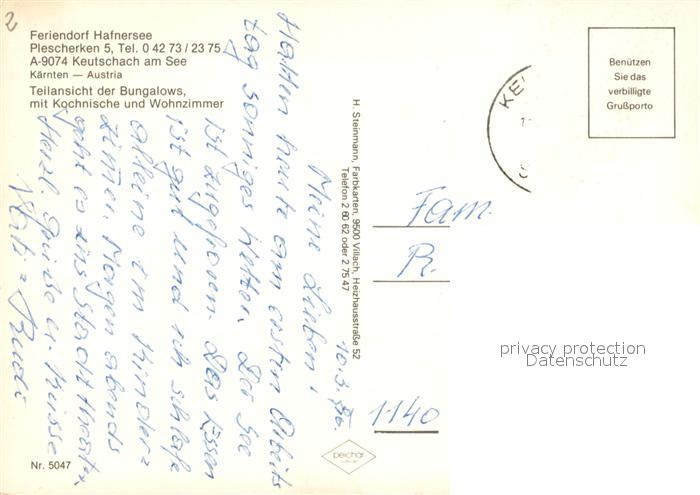 2
Feriendorf Hafnersee
Plescherken 5, Tel. 0 42 73 / 23 75
A-9074 Keutschach am See
Kärnten — Austria
Teilansicht der Bungalows,
mit Kochnische und Wohnzimmer
10.3.86.
Meine Lieben!
Hatten heute am ersten Arbeits
tag sonniges Wetter. Der See
ist zugefroren. Das Essen
ist gut und ich schlafe
alleine im Kinder=
zimmer. Morgen abends
geht es ins Stadttheater.
Herzl. Grüße u. Küsse
Rudi
Nr. 5047
H. Steinmann, Farbkarten, 9500 Villach, Heizhausstraße 52
Telefon 2 60 62 oder 2 75 47
peichär
KE
Benützen
Sie das
verbilligte
Grußporto
Fam.
R.
1140
privacy protection
Datenschutz